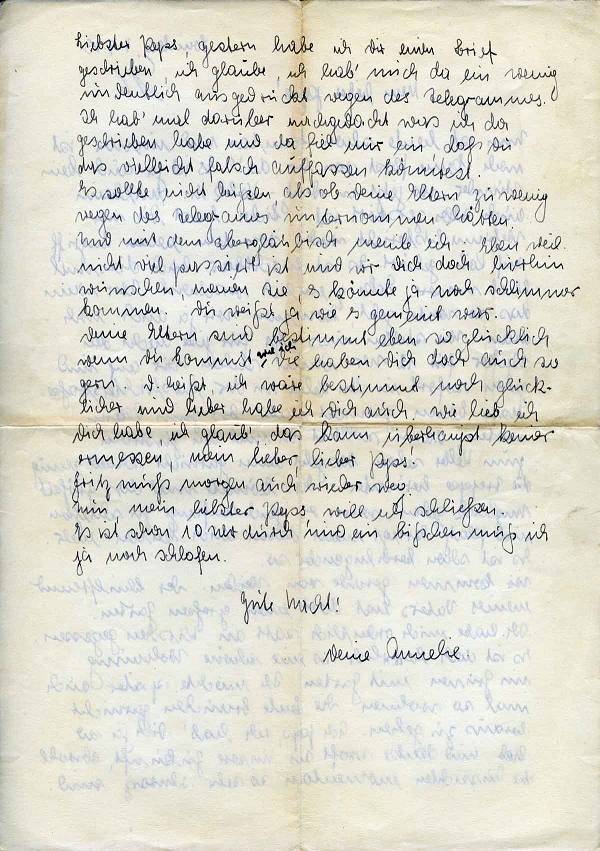 Liebster Peps, gestern habe ich dir einen Brief
geschrieben, ich glaube, ich hab' mich da ein wenig
undeutlich ausgedrückt wegen des Telegrammes.
Ich hab' mal darüber nachgedacht was ich da
geschrieben habe und da fiel mir ein daß du
das vielleicht falsch auffassen könntest.
Es sollte nicht heißen, als ob deine Eltern zu wenig
wegen des Telegrames unternommen hätten
und mit dem abergläubisch meinte ich Eben weil
nicht viel passiert ist und wir dich doch hierhin
wünschen, meinen sie, es könnte ja noch schlimmer
kommen. Du weißt ja wie es gemeint war.
Deine Eltern sind bestimmt eben so glücklich
wenn du kommst wie ich die haben dich doch auch so
gern d. heißt, ich wäre bestimmt noch glück-
licher und lieber habe ich dich auch, wie lieb ich
dich habe, ich glaub', das kann überhaupt keiner
ermessen, mein lieber, lieber Peps!
Fritz muß morgen auch wieder weg.
Nun mein liebster Peps will ich schließen.
Es ist schon 10 Uhr durch und ein bißchen muß ich
ja noch schlafen.
Gute Nacht!
Deine Anneke.